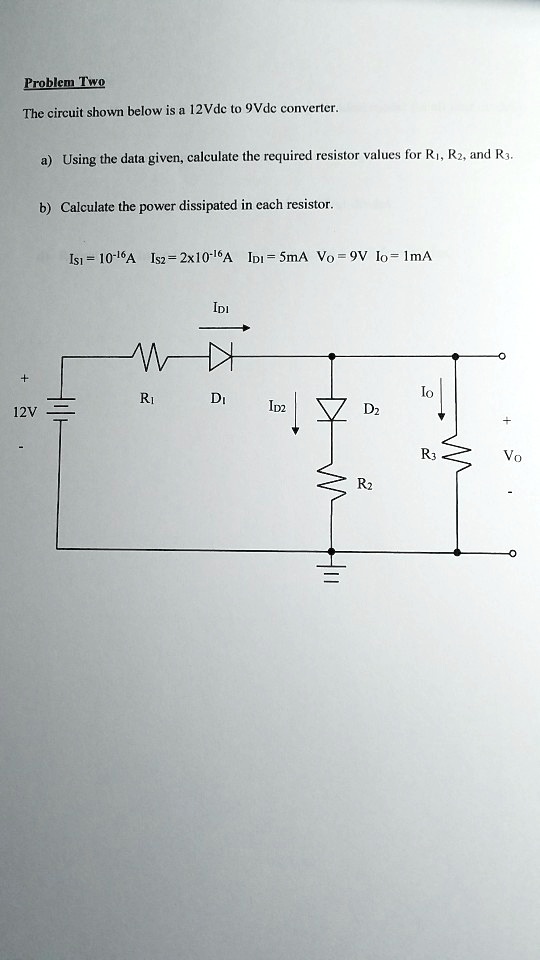 Problem Two
The circuit shown below is a 12Vdc to 9Vdc converter.
a) Using the data given, calculate the required resistor values for R1, R2, and R3.
b) Calculate the power dissipated in each resistor.
IS1 = 10-16A IS2 = 2x10-16A ID1 = 5mA VO = 9V IO = 1mA
ID1
+
12V
-
R1
D1
ID2
D2
R2
IO
R3
+
VO
-